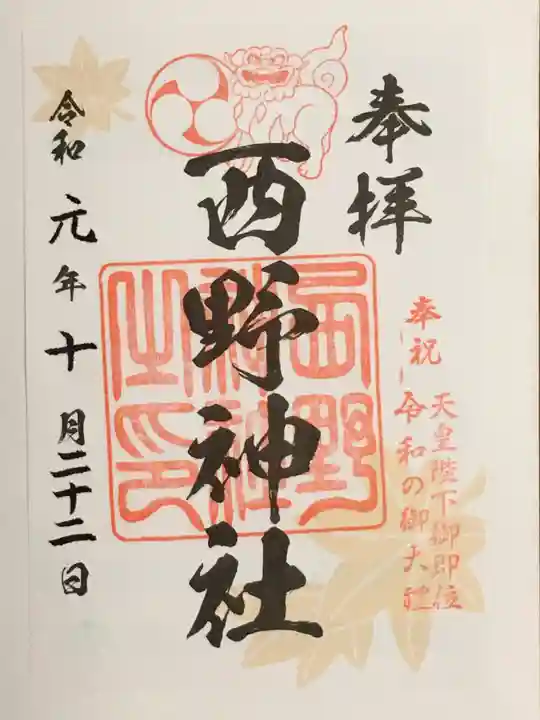 奉拝
奉祝
天皇陛下御即位
令和の御大礼
西野神社
西野神社之印
令和元年十月二十二日